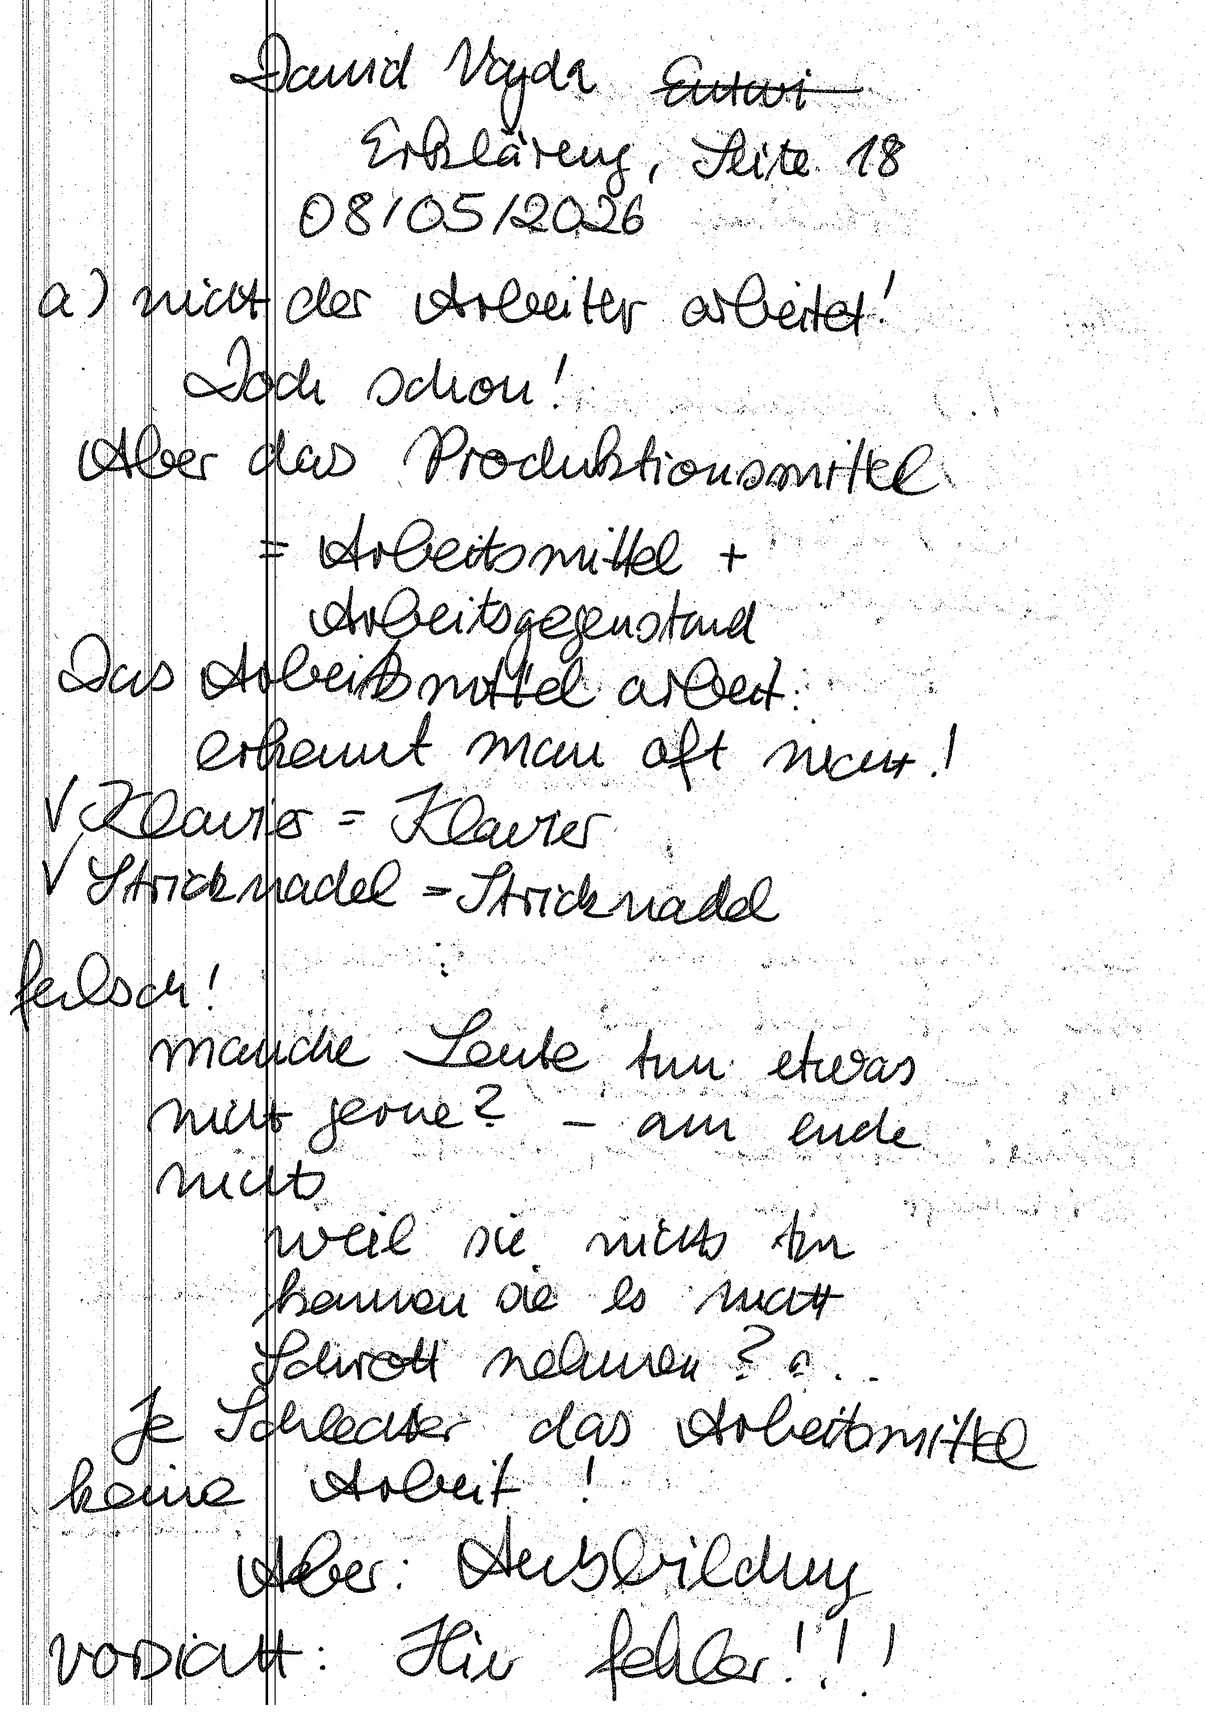 David Vajda Entwi
Erklärung, Seite 18
08/05/2026
a) nicht der Arbeiter arbeitet!
Doch schon!
Aber das Produktionsmittel
= Arbeitsmittel +
Arbeitsgegenstand
Das Arbeitsmittel arbeit:
erkennt man oft nicht!
√ Klavier = Klavier
√ Stricknadel = Stricknadel
falsch!
manche Leute tun etwas
nicht gerne? – am ende
nichts
weil sie nichts tun
können sie es nicht
Schrott nehmen? ...
Je Schlechter das Arbeitsmittel
keine Arbeit!
Aber: Ausbildung
vorsicht: Hier fehler!!!